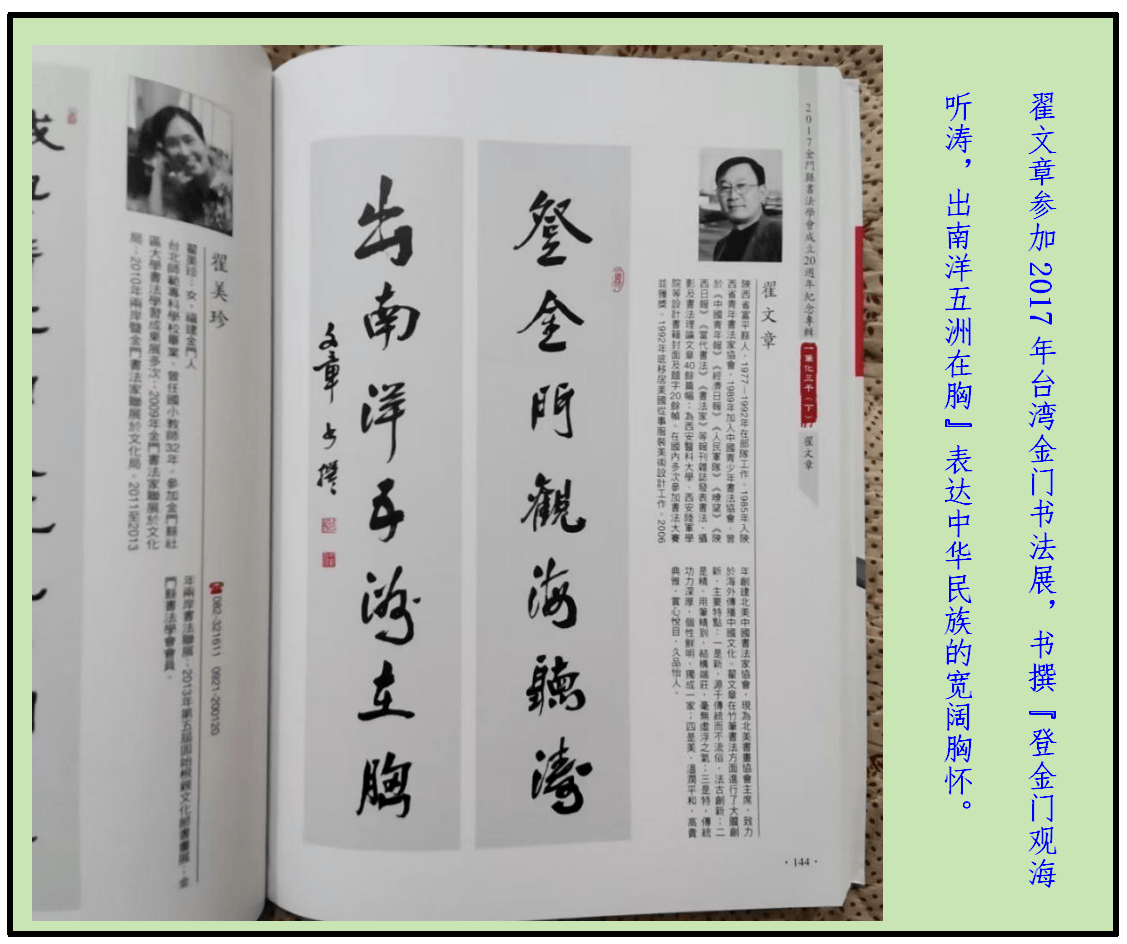 翟文章参加2017年台湾金门书法展，书撰『登金门观海
听涛，出南洋五洲在胸』表达中华民族的宽阔胸怀。
2017金門縣書法學會成立20週年紀念專輯 一筆化三千（下） 翟文章
翟文章
陝西省富平縣人，1977—1992年在部隊工作，1985年入陝
西省青年書法家協會，1989年加入中國青少年書法協會，曾
於《中國青年報》《經濟日報》《人民軍隊》《瞭望》《陝
西日報》《當代書法》《書法家》等報刊雜誌發表書法、攝
影及書法理論文章40餘篇幅；為西安醫科大學、西安陸軍學
院等設計書籍封面及題字20餘幀，在國內多次參加書法大賽
並獲獎，1992年底移居美國從事服裝美術設計工作，2006
年創建北美中國書法家協會，現為北美書畫協會主席，致力
於海外傳播中國文化。翟文章在竹筆書法方面進行了大膽創
新，主要特點：一是新，源于傳統而不流俗，法古創新；二
是精，用筆精到，結構端莊，毫無虛浮之氣；三是特，傳統
功力深厚，個性鮮明，獨成一家；四是美，溫潤平和，高貴
典雅，賞心悅目，久品怡人。
登金門觀海聽濤
出南洋五洲在胸
文章書撰
·144·
翟美珍
翟美珍：女，福建金門人
台北師範專科學校畢業，曾任國小教師32年，參加金門縣社
區大學書法學習成果展多次；2009年金門書法家聯展於文化
局；2010年兩岸暨金門書法家聯展於文化局，2011至2013
年兩岸書法聯展；2013年第五屆固始根親文化節書畫展；金
門縣書法學會會員。
☎082-321611 0921-200120